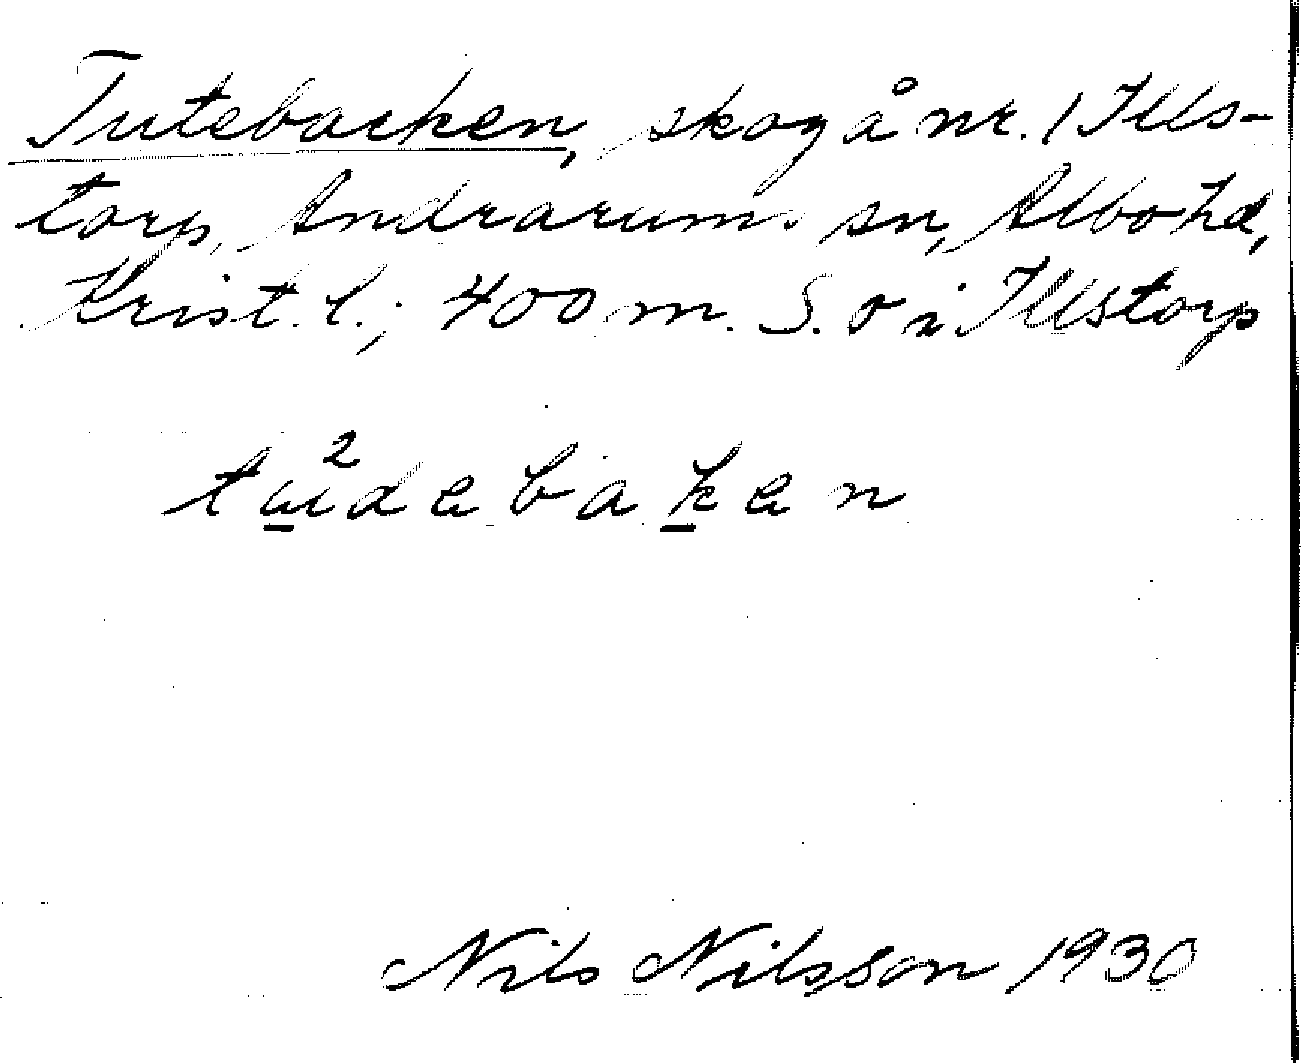 Tutebacken, skog å nr. 1 Ills-
torp, Andrarums sn, Albo hd,
Krist. l.; 400 m. S. o i Illstorp
tu²debaken
Nils Nilsson 1930